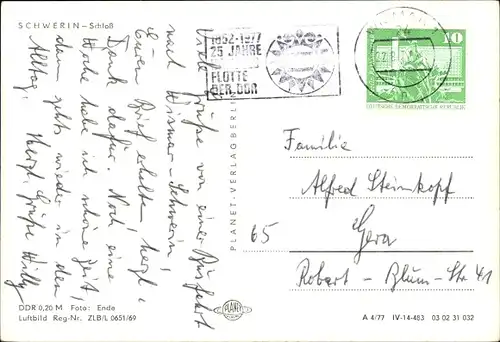 SCHWERIN - Schloß
Viele Grüße von einer Busfahrt
nach Wismar - Schwerin!
Euren Brief erhalten, herzl.
Dank dafür. Noch eine
Woche habe ich schöne Zeit,
dann gehts wieder in den
Alltag. Herzl. Grüße Willy
DDR 0,20 M Foto: Ende
Luftbild Reg-Nr. ZLB/L 0651/69
PLANET-VERLAG BERLIN
PLANET
1952-1977
25 JAHRE
FLOTTE
DER DDR
10
DEUTSCHE DEMOKRATISCHE REPUBLIK
Familie
Alfred Steinkopf
65 Gera
Robert-Blum-Str 41
A 4/77 IV-14-483 03 02 31 032